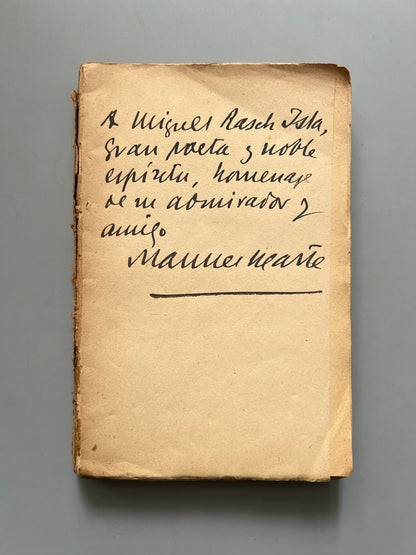 A Miguel Rasch Isla,
gran poeta y noble
espíritu, homenaje
de su admirador y
amigo
Manuel Ugarte